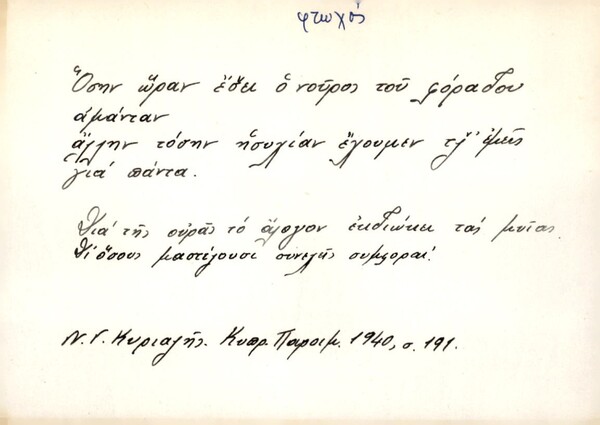 φτωχός
Ὅσην ὥραν ἔδει ὁ νοῦρος τοῦ φόραδου
ἀμάνταν
ἄλλην τόσην ἡσυχίαν ἔχουμεν τζ' ἐμεῖς
γιά πάντα.
Διά τῆς οὐρᾶς τό ἄλογον ἐκδιώκει τάς μυίας.
Δι' ὅσους μαστίζουσι συνεχῆς συμφοραί!
Ν. Γ. Κυριαζῆς. Κυπρ. Παροιμ. 1940, σ. 191.